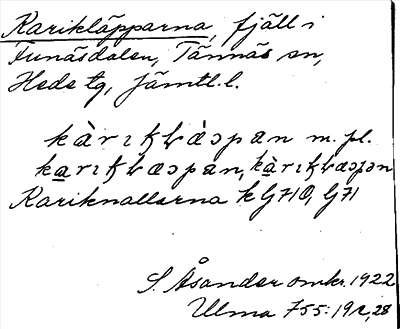 Karikläpparna, fjäll i
Funäsdalen, Tännäs sn,
Hede tg, Jämtl. l.
kàrıƙʟæ̀ɔpan m. pl.
karıƙʟæɔpan, kàrıƙʟæɔpən
Kariknallarna k G710, G71
S. Åsander omkr. 1922
Ulma 755: 19